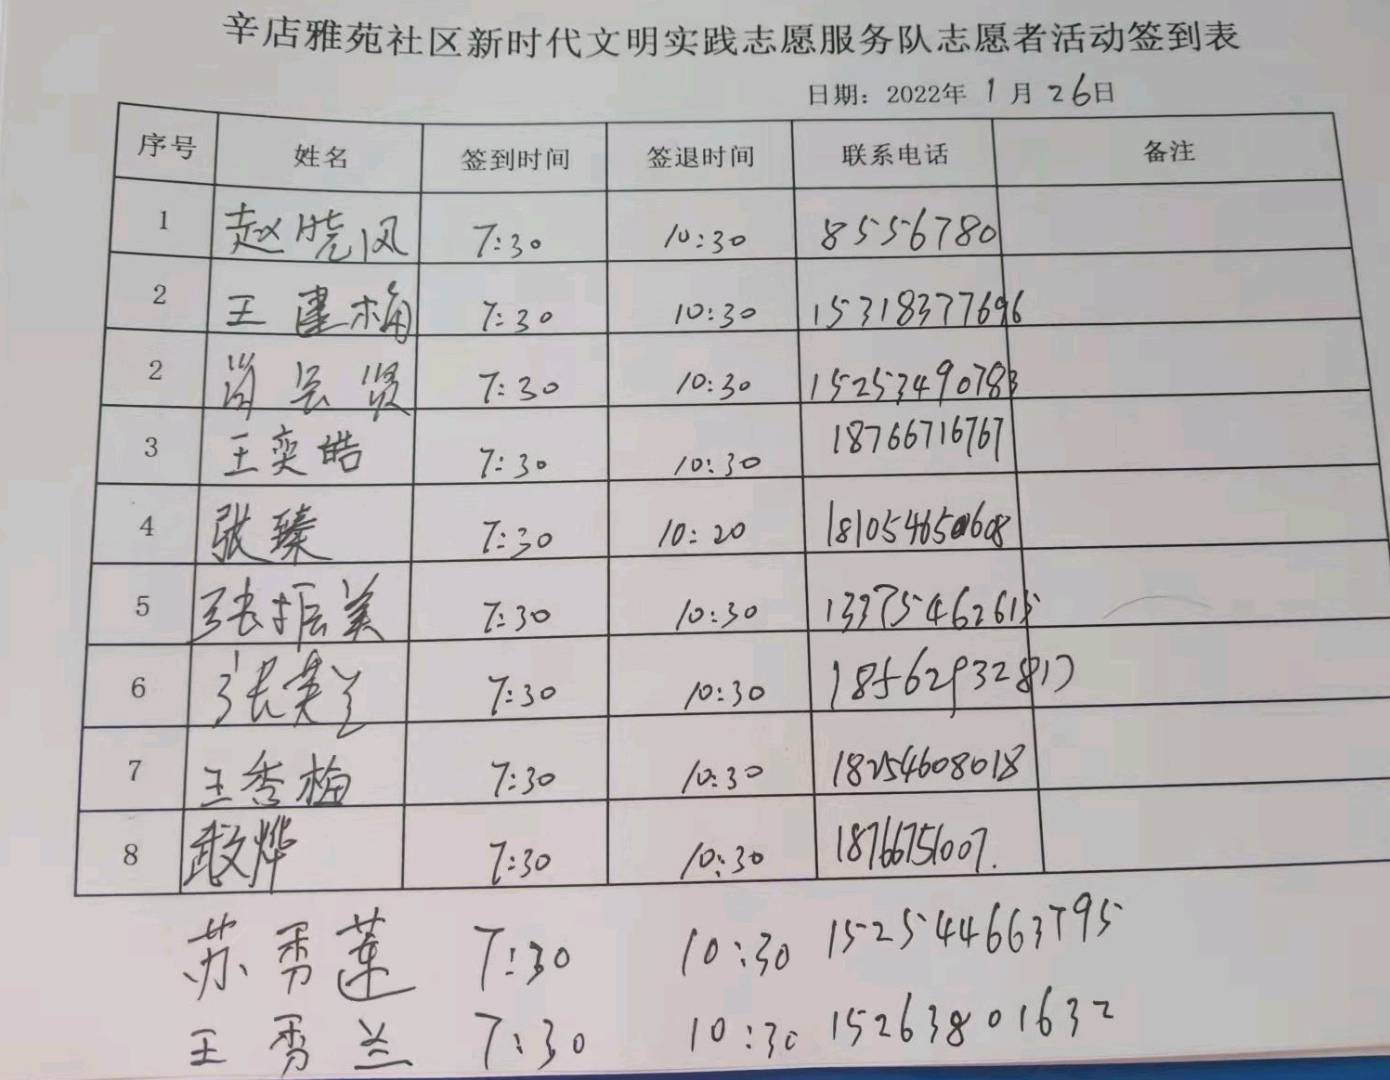 辛店雅苑社区新时代文明实践志愿服务队志愿者活动签到表
日期：2022年 1月26日
序号 姓名 签到时间 签退时间 联系电话 备注
1 赵晓风 7:30 10:30 8556780
2 王建梅 7:30 10:30 15318377696
2 尚长贤 7:30 10:30 15253490783
3 王奕皓 7:30 10:30 18766716767
4 张臻 7:30 10:20 181054650608
5 张振美 7:30 10:30 13375462615
6 张美兰 7:30 10:30 18562932817
7 王秀梅 7:30 10:30 18254608018
8 武文烨 7:30 10:30 18766751007.
苏秀莲 7:30 10:30 152544663795
王秀兰 7:30 10:30 15263801632